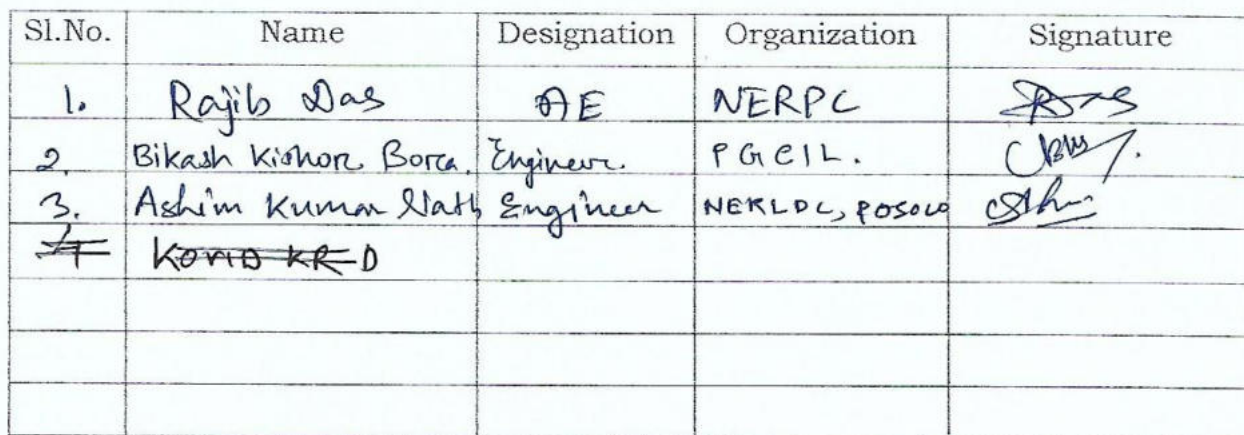 Sl.No. Name Designation Organization Signature
1. Rajib Das AE NERPC
2. Bikash Kishor Bora. Engineer. PGCIL.
3. Ashim Kumar Nath Engineer NERLDC, POSOCO